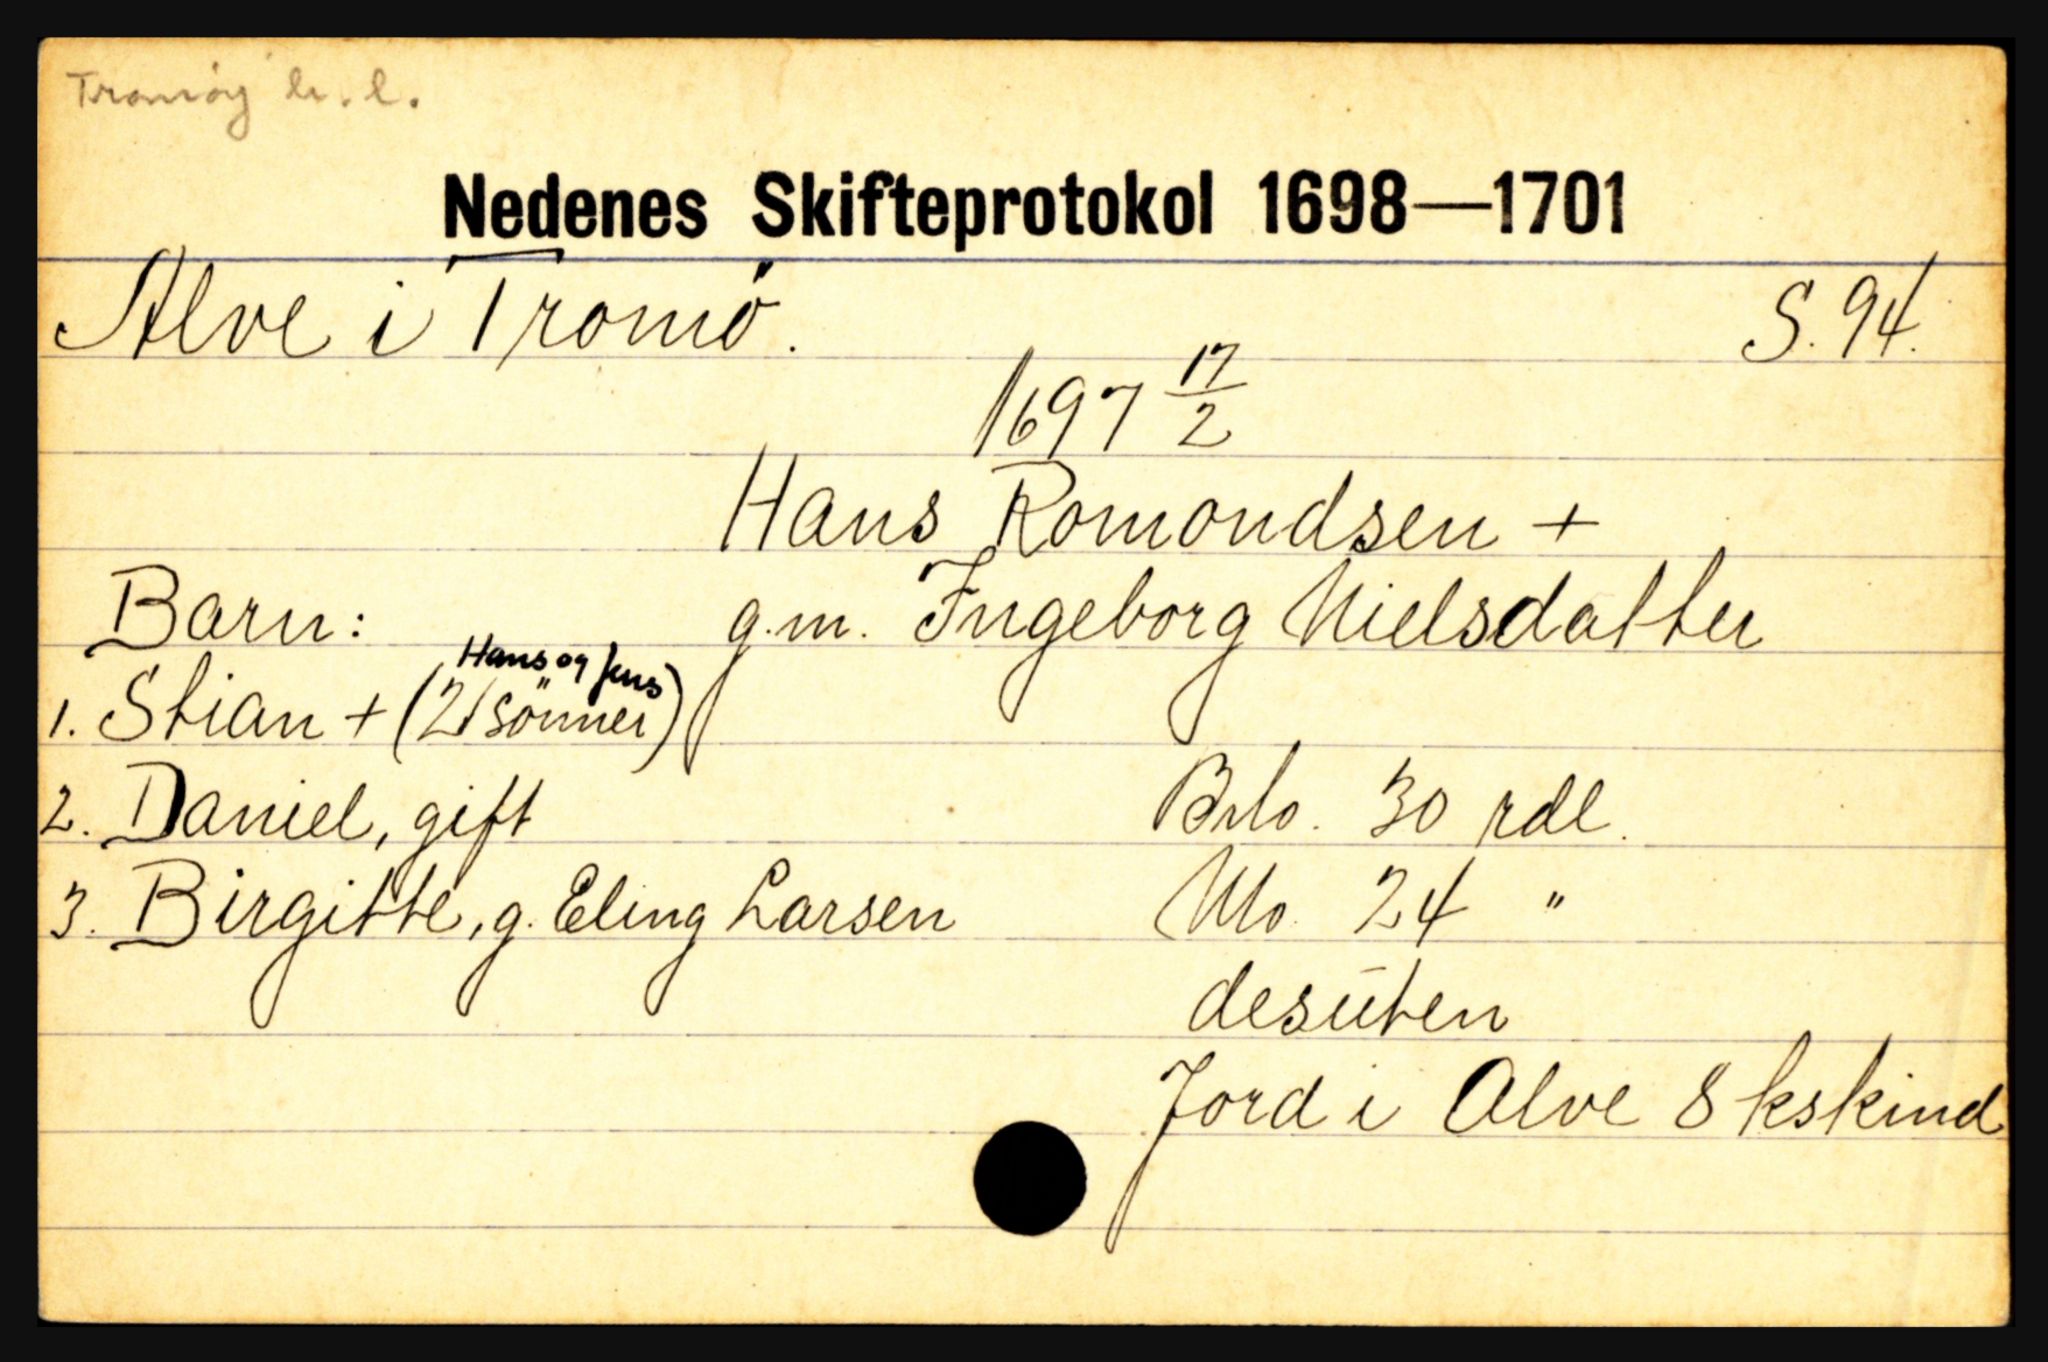 Tromöy h.l.
Nedenes Skifteprotokol 1698—1701
Alve i Tromö. S. 94.
1697 17/2
Hans Romondsen +
Barn: g.m. Ingeborg Nielsdatter
Hans og Jens
1. Stian + (2 sönner)
2. Daniel, gift Brlo. 30 rdl.
3. Birgitte, g. Eling Larsen Mo. 24 "
desuten
Jord i Alve 8 kskind